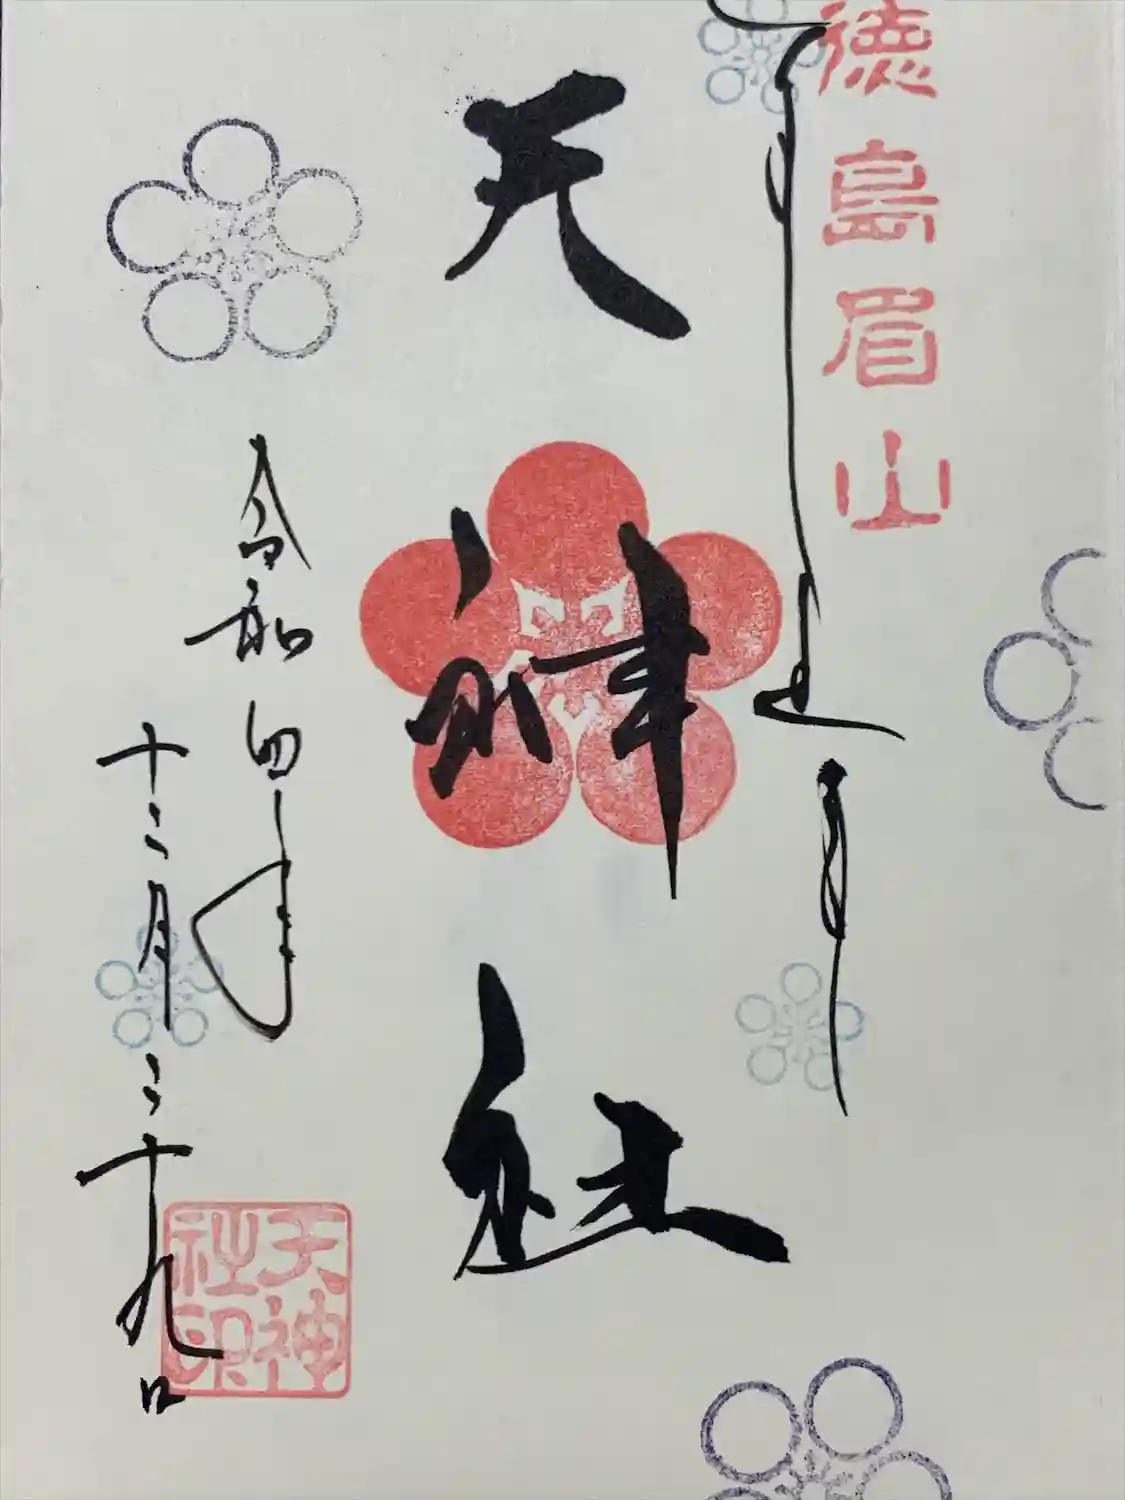 徳島眉山
奉拝
天神社
令和四年
十二月二十九日
天神
社印